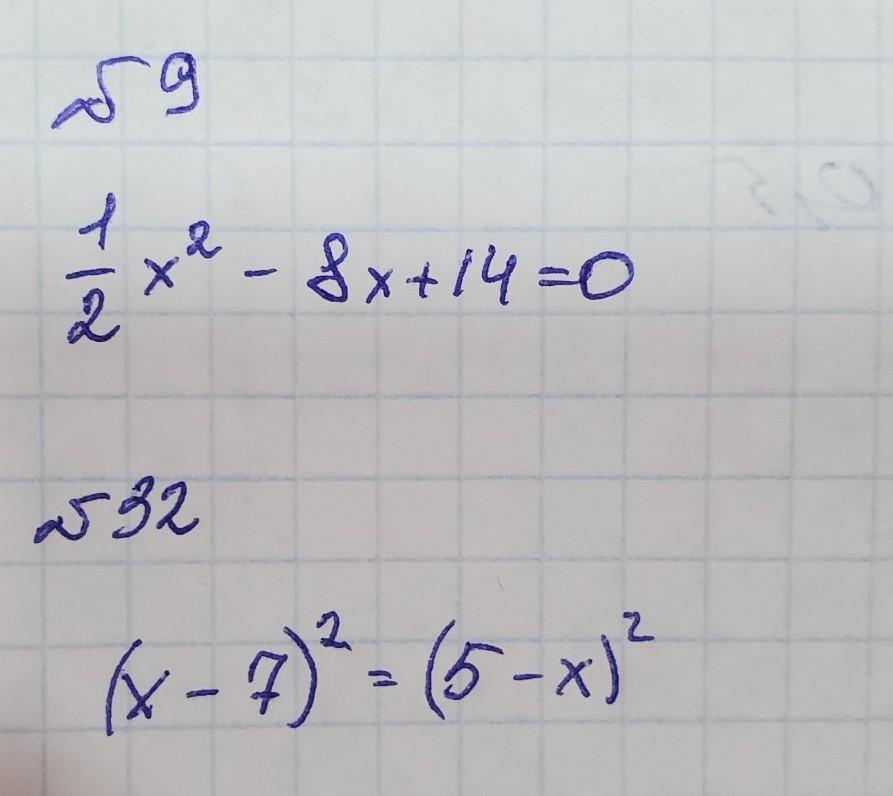 №9
1/2 x² - 8x + 14 = 0
№32
(x - 7)² = (5 - x)²